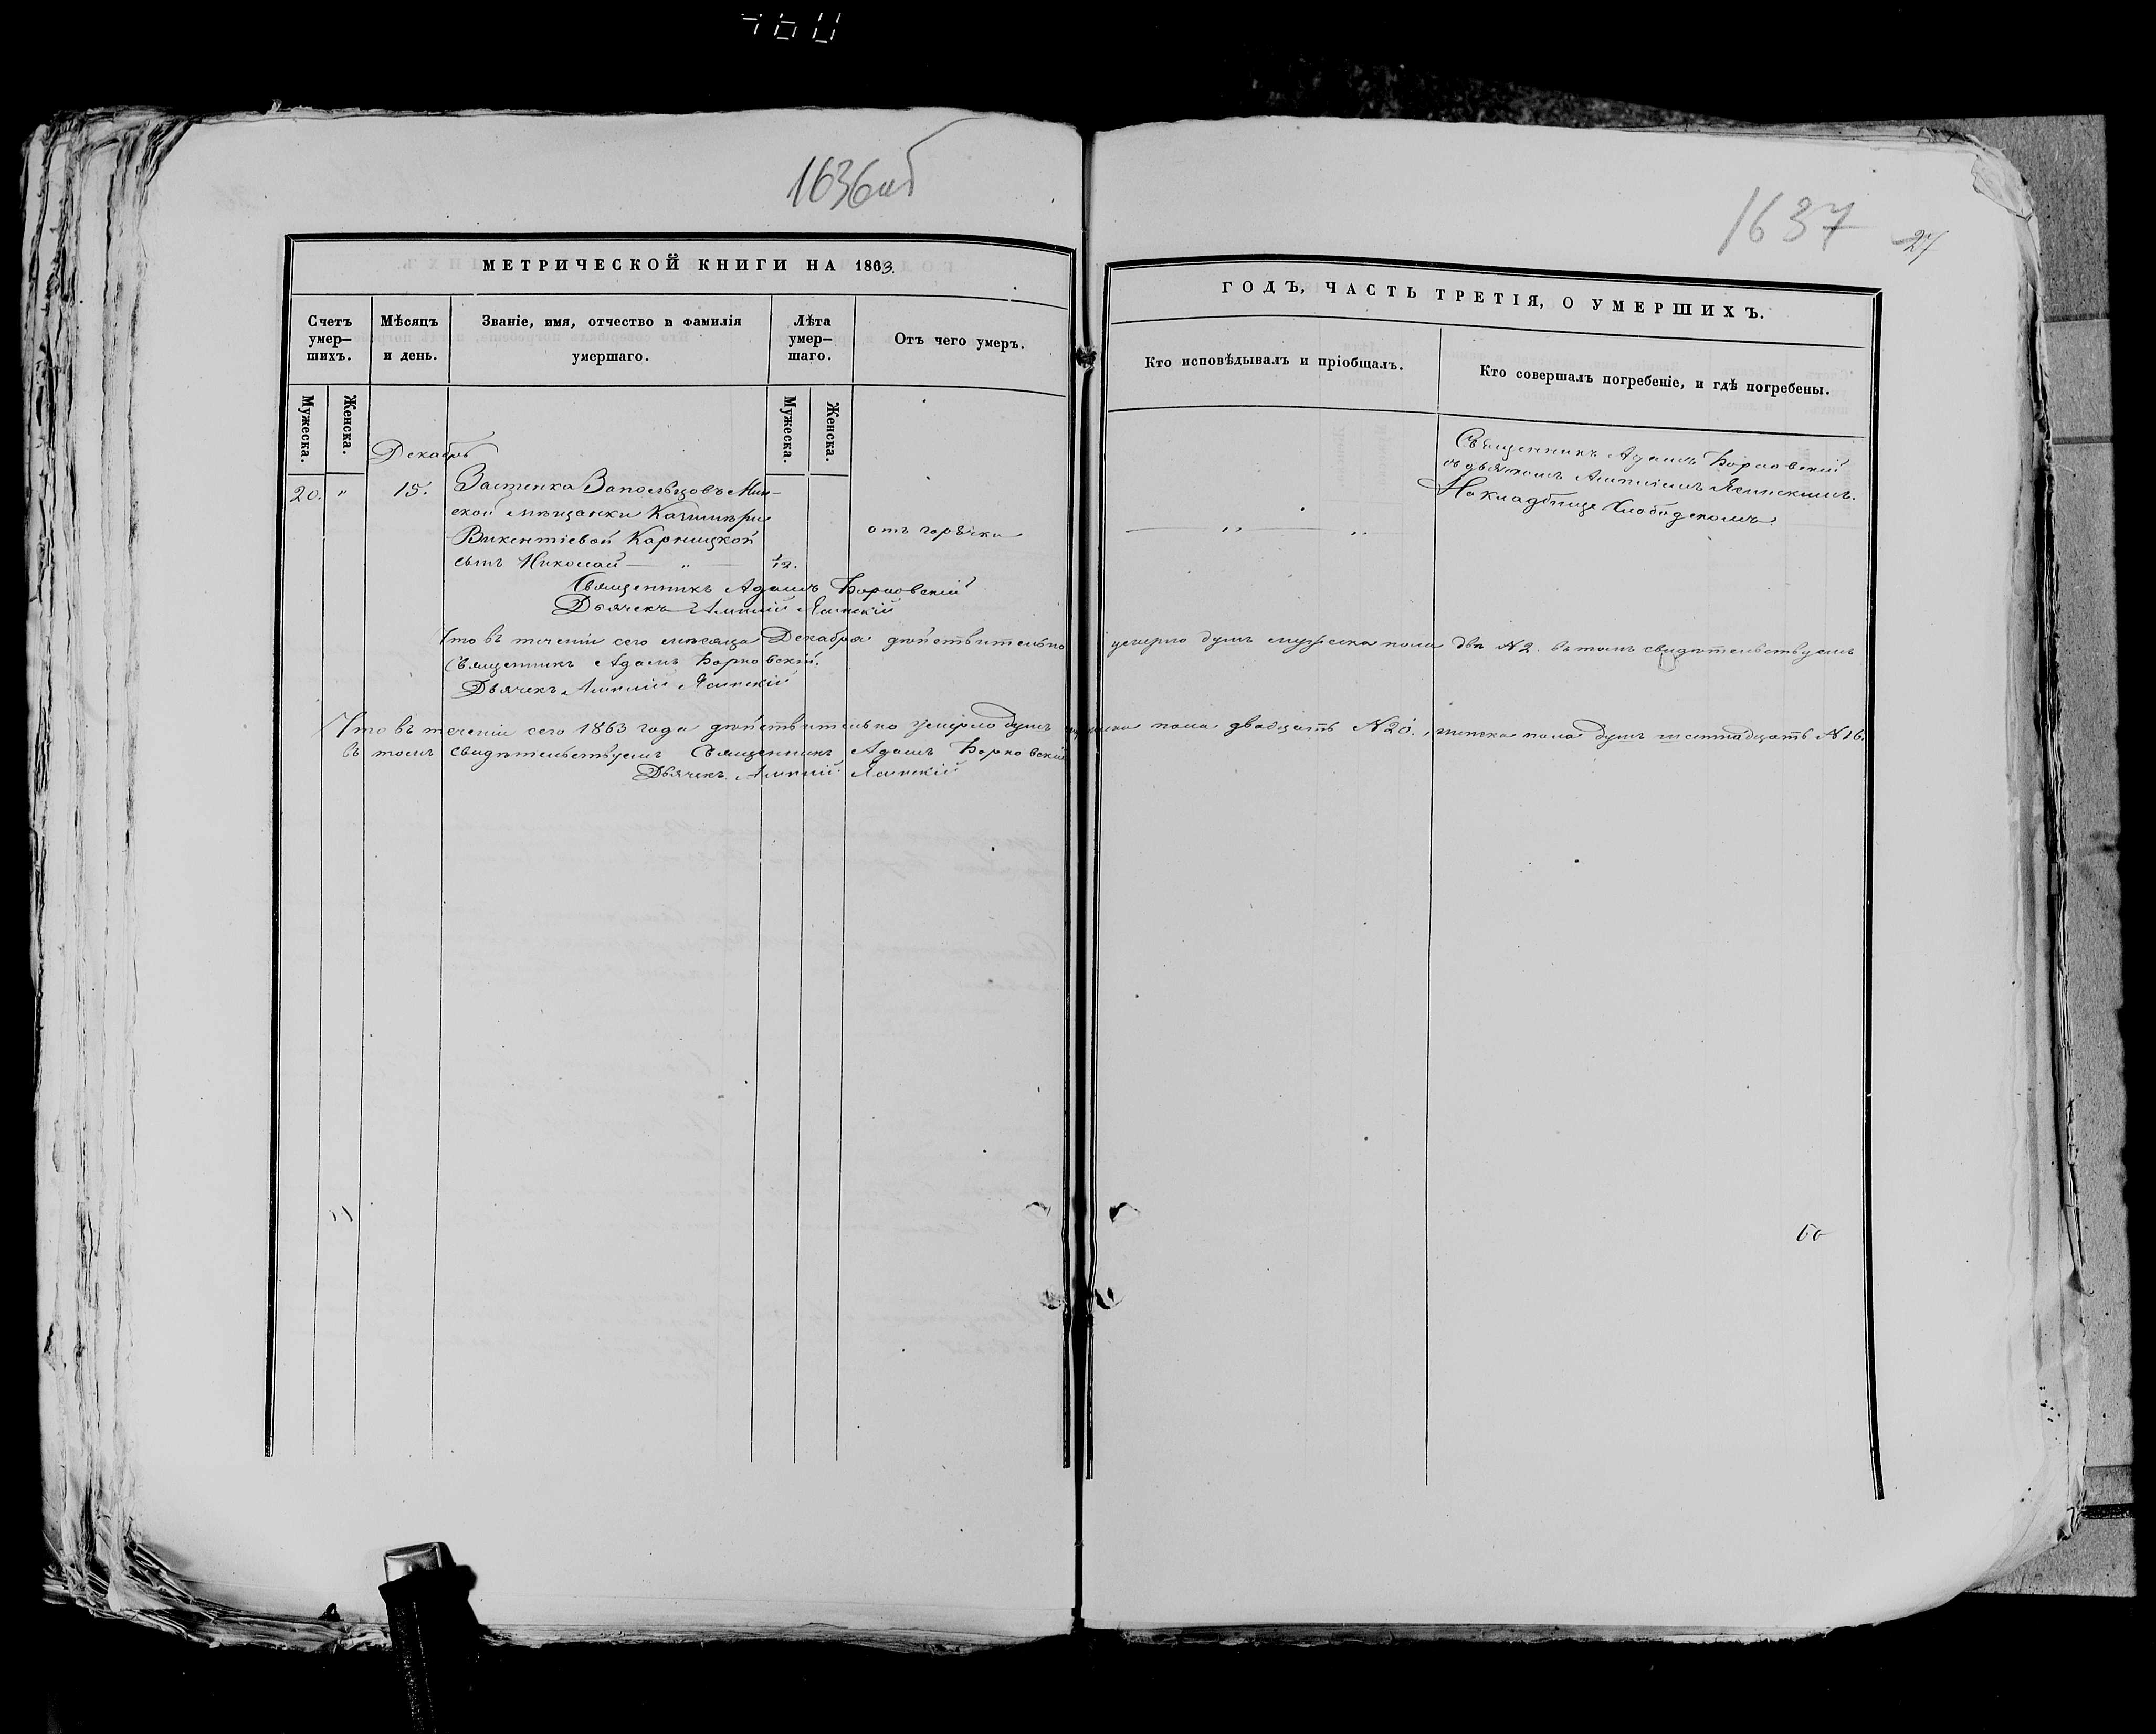 1636об
МЕТРИЧЕСКОЙ КНИГИ НА 1863.
Счетъ умер-шихъ.
Мѣсяцъ и день.
Званіе, имя, отчество и фамилія умершаго.
Лѣта умер-шаго.
Отъ чего умеръ.
Мужеска.
Женска.
Мужеска.
Женска.
Декабрь
20. " 15. Застенка Запольцовъ Мин-
ской мѣщанки Казимѣры
Викентіевой Карницкой
сынъ Николай — " — 1/12.
отъ горячки
Священникъ Адамъ Борковскій
Дьячекъ Алипій Ясинскій
Что въ теченіи сего мѣсяца Декабря дѣйствительно умерло душъ мужеска пола двѣ N2. въ томъ свидѣтельствуемъ
Священникъ Адамъ Борковскій.
Дьячекъ Алипій Ясинскій
Что въ теченіи сего 1863 года дѣйствительно умерло душъ мужеска пола двадцать N20., женска пола душъ шестнадцать N16.
въ томъ свидѣтельствуемъ Священникъ Адамъ Борковскій
Дьячекъ Алипій Ясинскій
1637
27
ГОДЪ, ЧАСТЬ ТРЕТІЯ, О УМЕРШИХЪ.
Кто исповѣдывалъ и пріобщалъ.
Кто совершалъ погребеніе, и гдѣ погребены.
— " — " —
Священникъ Адамъ Борковскій
съ дьячкомъ Алипіемъ Ясинскимъ.
На кладбище Слободскомъ.